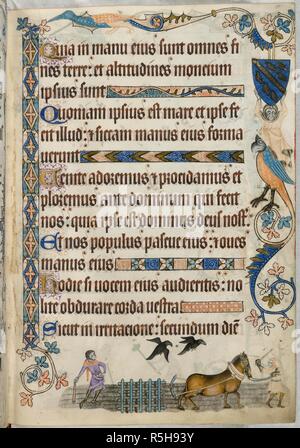 Quia in manu eius sunt omnes fi
nes terre: et altitudines montium
ipsius sunt
Quoniam ipsius est mare et ipse fe
cit illud: et siccam manus eius forma
uerunt
Venite adoremus et procidamus et
ploremus ante dominum qui fecit
nos: quia ipse est dominus deus nost
Et nos populus pascue eius: et oues
manus eius
Hodie si uocem eius audieritis: no
lite obdurare corda vestra
Sicut in irritatione: secundum diē
alamy
R5H93Y
www.alamy.com